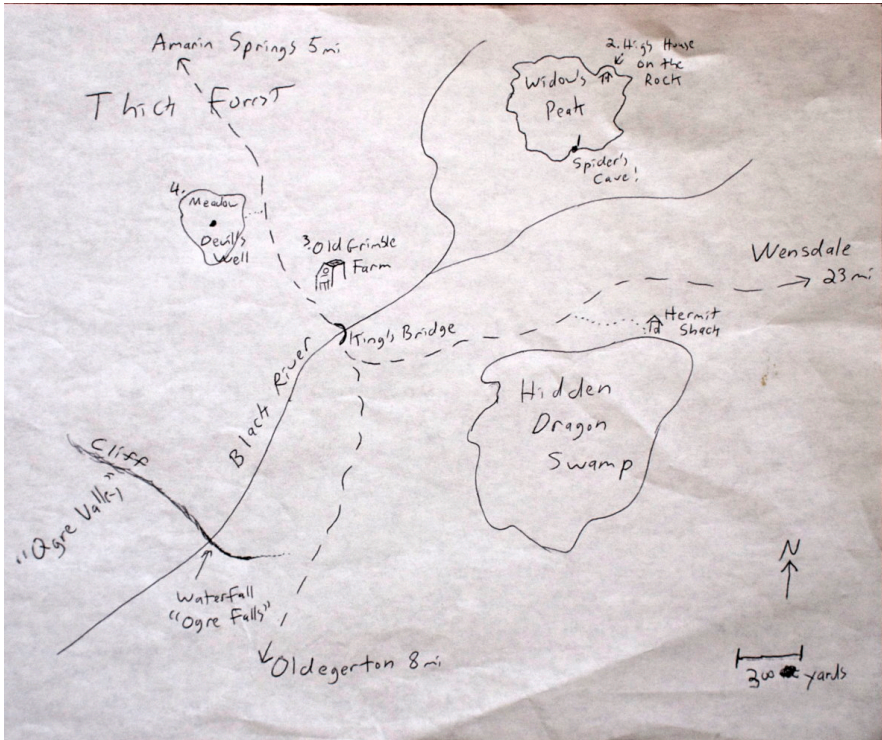 Amarin Springs 5 mi
Thick Forrest
2. High House
on the
Rock
Widow's
Peak
1
Spider's
Cave!
4.
Meadow
Devil's
Well
3. Old Grimble
Farm
Wensdale
23 mi
King's Bridge
Hermit
Shack
Black River
Hidden
Dragon
Swamp
Cliff
"Ogre Valley"
Waterfall
"Ogre Falls"
N
Oldegerton 8 mi
300 yards